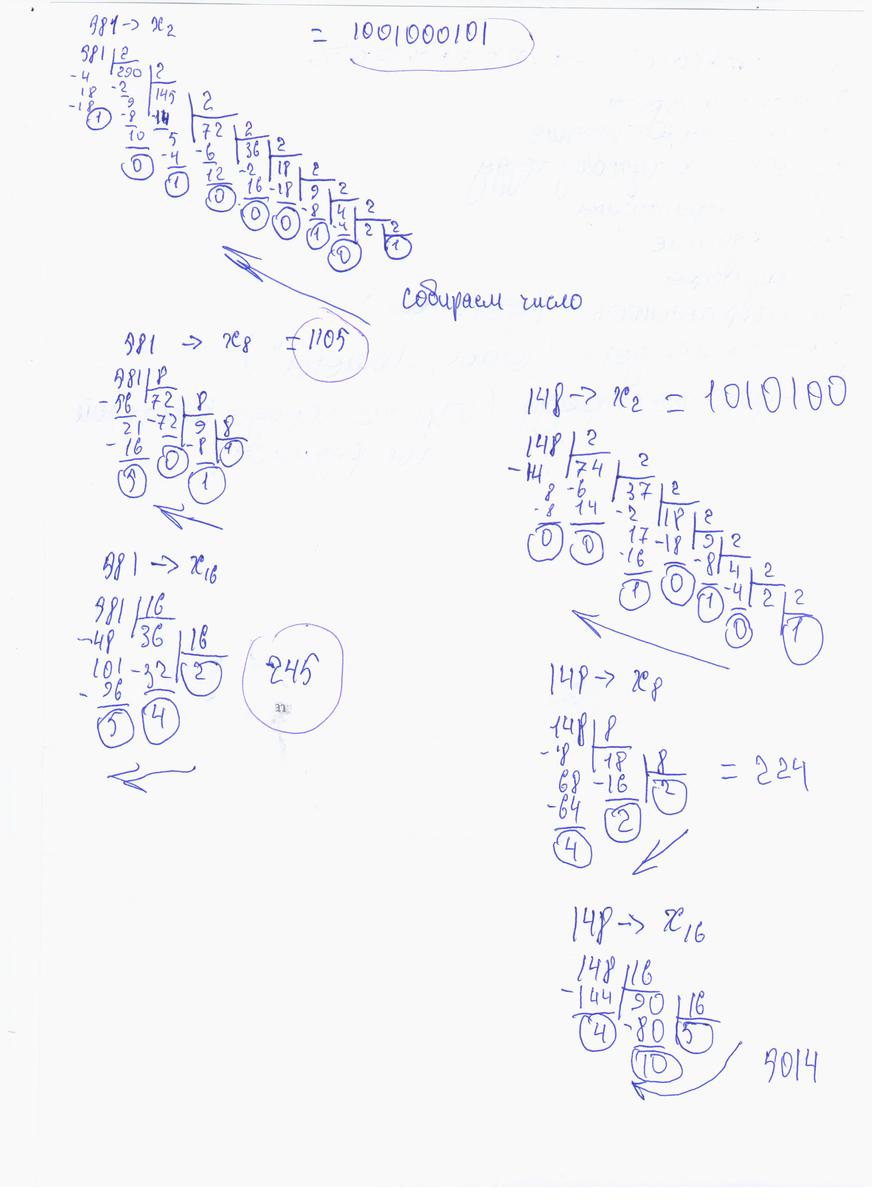 581 → x₂ = 1001000101
581 | 2
-4 290 | 2
18 -2 145 | 2
-18 9 -14 72 | 2
1 -8 5 -6 36 | 2
10 -4 12 -2 18 | 2
0 1 0 16 -18 9 | 2
0 0 -8 4 | 2
1 -4 2 | 2
0 1
собираем число
581 → x₈ = 1105
581 | 8
-56 72 | 8
21 -72 9 | 8
-16 0 -8 1
5 1
581 → x₁₆
581 | 16
-48 36 | 16
101 -32 2
-96 4
5
245
148 → x₂ = 1010100
148 | 2
-14 74 | 2
8 -6 37 | 2
-8 14 -2 18 | 2
0 0 17 -18 9 | 2
-16 0 -8 4 | 2
1 1 -4 2 | 2
0 1
148 → x₈
148 | 8
-8 18 | 8
68 -16 2 = 224
-64 2
4
148 → x₁₆
148 | 16
-144 90 | 16
4 -80 5
10 5014